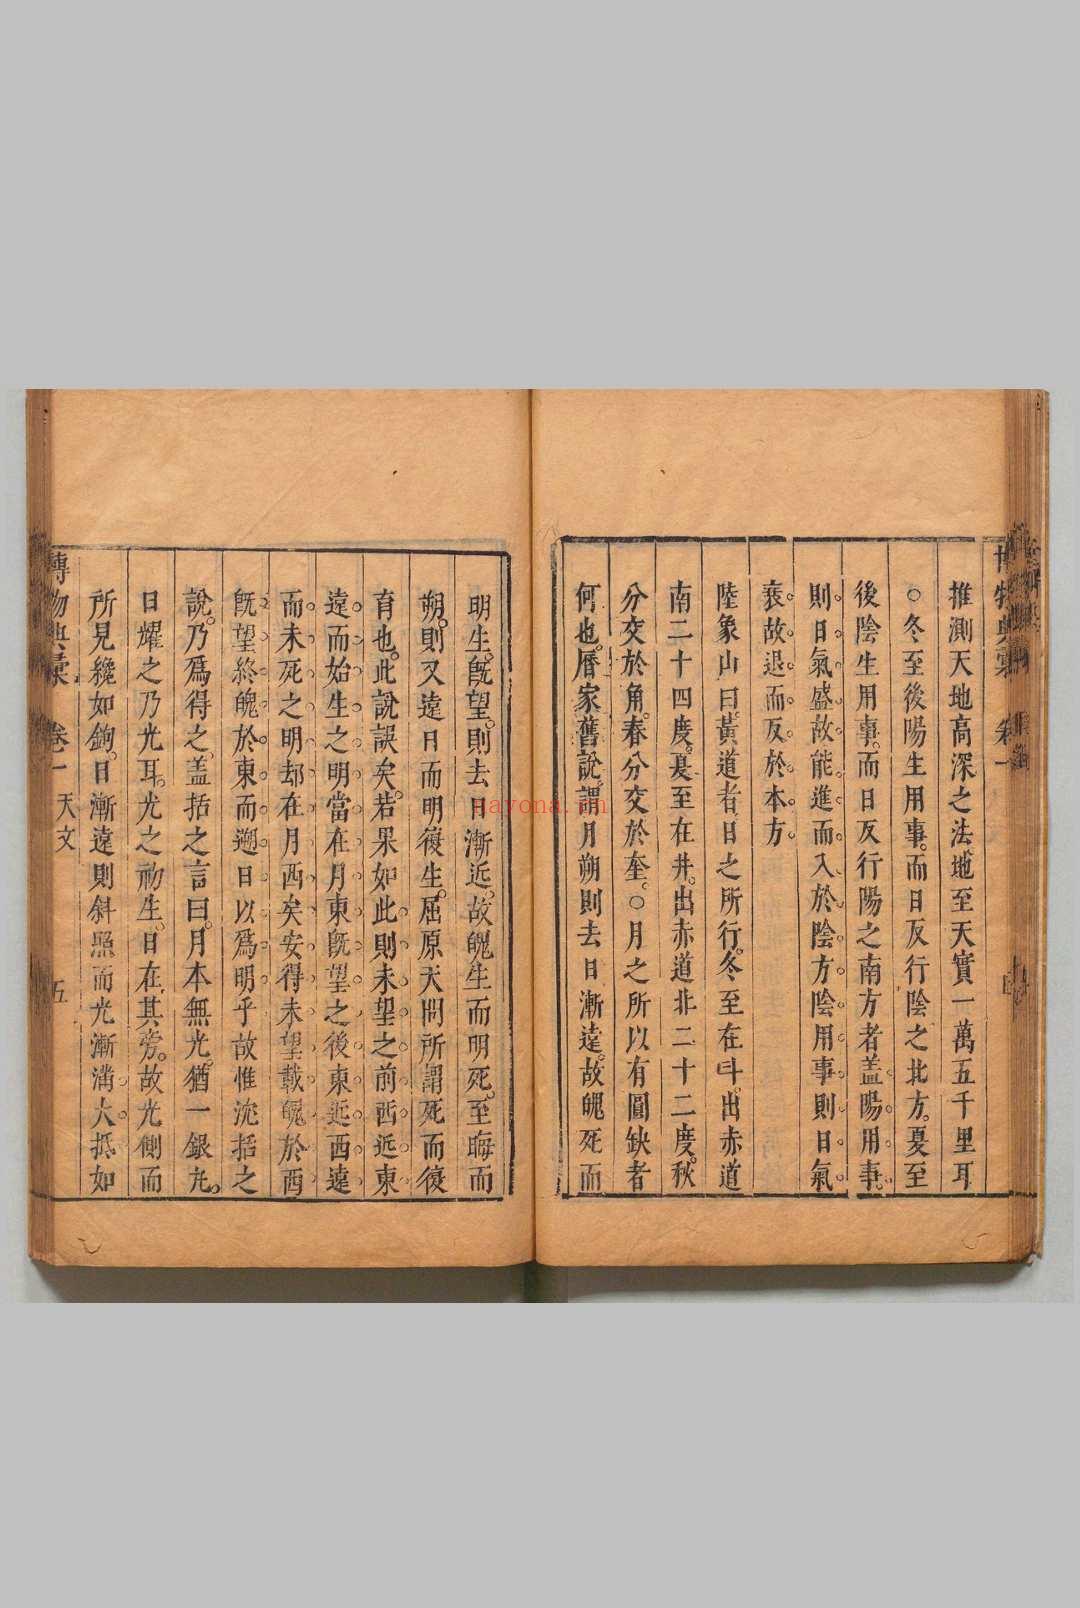 博物典彙 卷一
推測天地高深之法地至天實一萬五千里耳
○冬至後陽生用事而日反行陰之北方夏至
後陰生用事而日反行陽之南方者盖陽用事
則日氣盛故能進而入於陰方陰用事則日氣
衰故退而反於本方
陸象山曰黃道者日之所行冬至在斗出赤道
南二十四度夏至在井出赤道北二十二度秋
分交於角春分交於奎○月之所以有圓缺者
何也曆家舊說謂月朔則去日漸遠故魄死而
明生旣望則去日漸近故魄生而明死至晦而
朔則又遠日而明復生屈原天問所謂死而復
育也此說誤矣若果如此則未望之前西近東
遠而始生之明當在月東旣望之後東近西遠
而未死之明却在月西矣安得未望載魄於西
旣望終魄於東而遡日以爲明乎故惟沈括之
說乃爲得之盖括之言曰月本無光猶一銀丸
日耀之乃光耳光之初生日在其旁故光側而
所見纔如鉤日漸遠則斜照而光漸滿大抵如
博物典彙 卷一 天文 五
nayona.cn